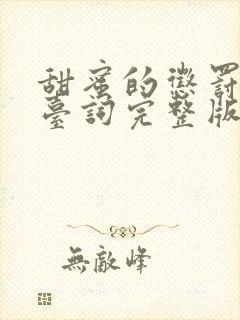 甜蜜的懲罰
臺詞完整版
無敵峰